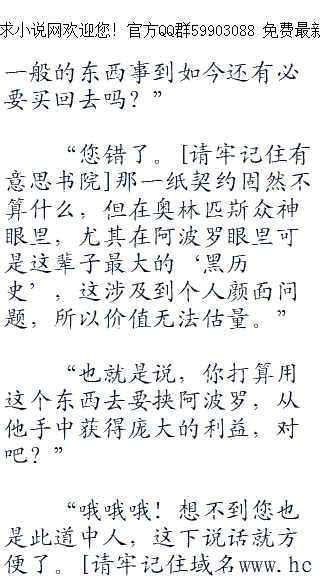 求小说网欢迎您！官方QQ群59903088 免费最新
一般的东西事到如今还有必
要买回去吗？”
“您错了。[请牢记住有
意思书院]那一纸契约固然不
算什么，但在奥林匹斯众神
眼里，尤其在阿波罗眼里可
是这辈子最大的‘黑历
史’，这涉及到个人颜面问
题，所以价值无法估量。”
“也就是说，你打算用
这个东西去要挟阿波罗，从
他手中获得庞大的利益，对
吧？”
“哦哦哦！想不到您也
是此道中人，这下说话就方
便了。[请牢记住域名www.hc